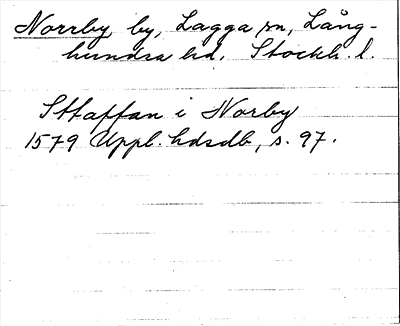 Norrby, by, Lagga sn, Lång-
hundra hd, Stockh. l.
Sttaffan i Norby
1579 Uppl. hdsdb, s. 97.